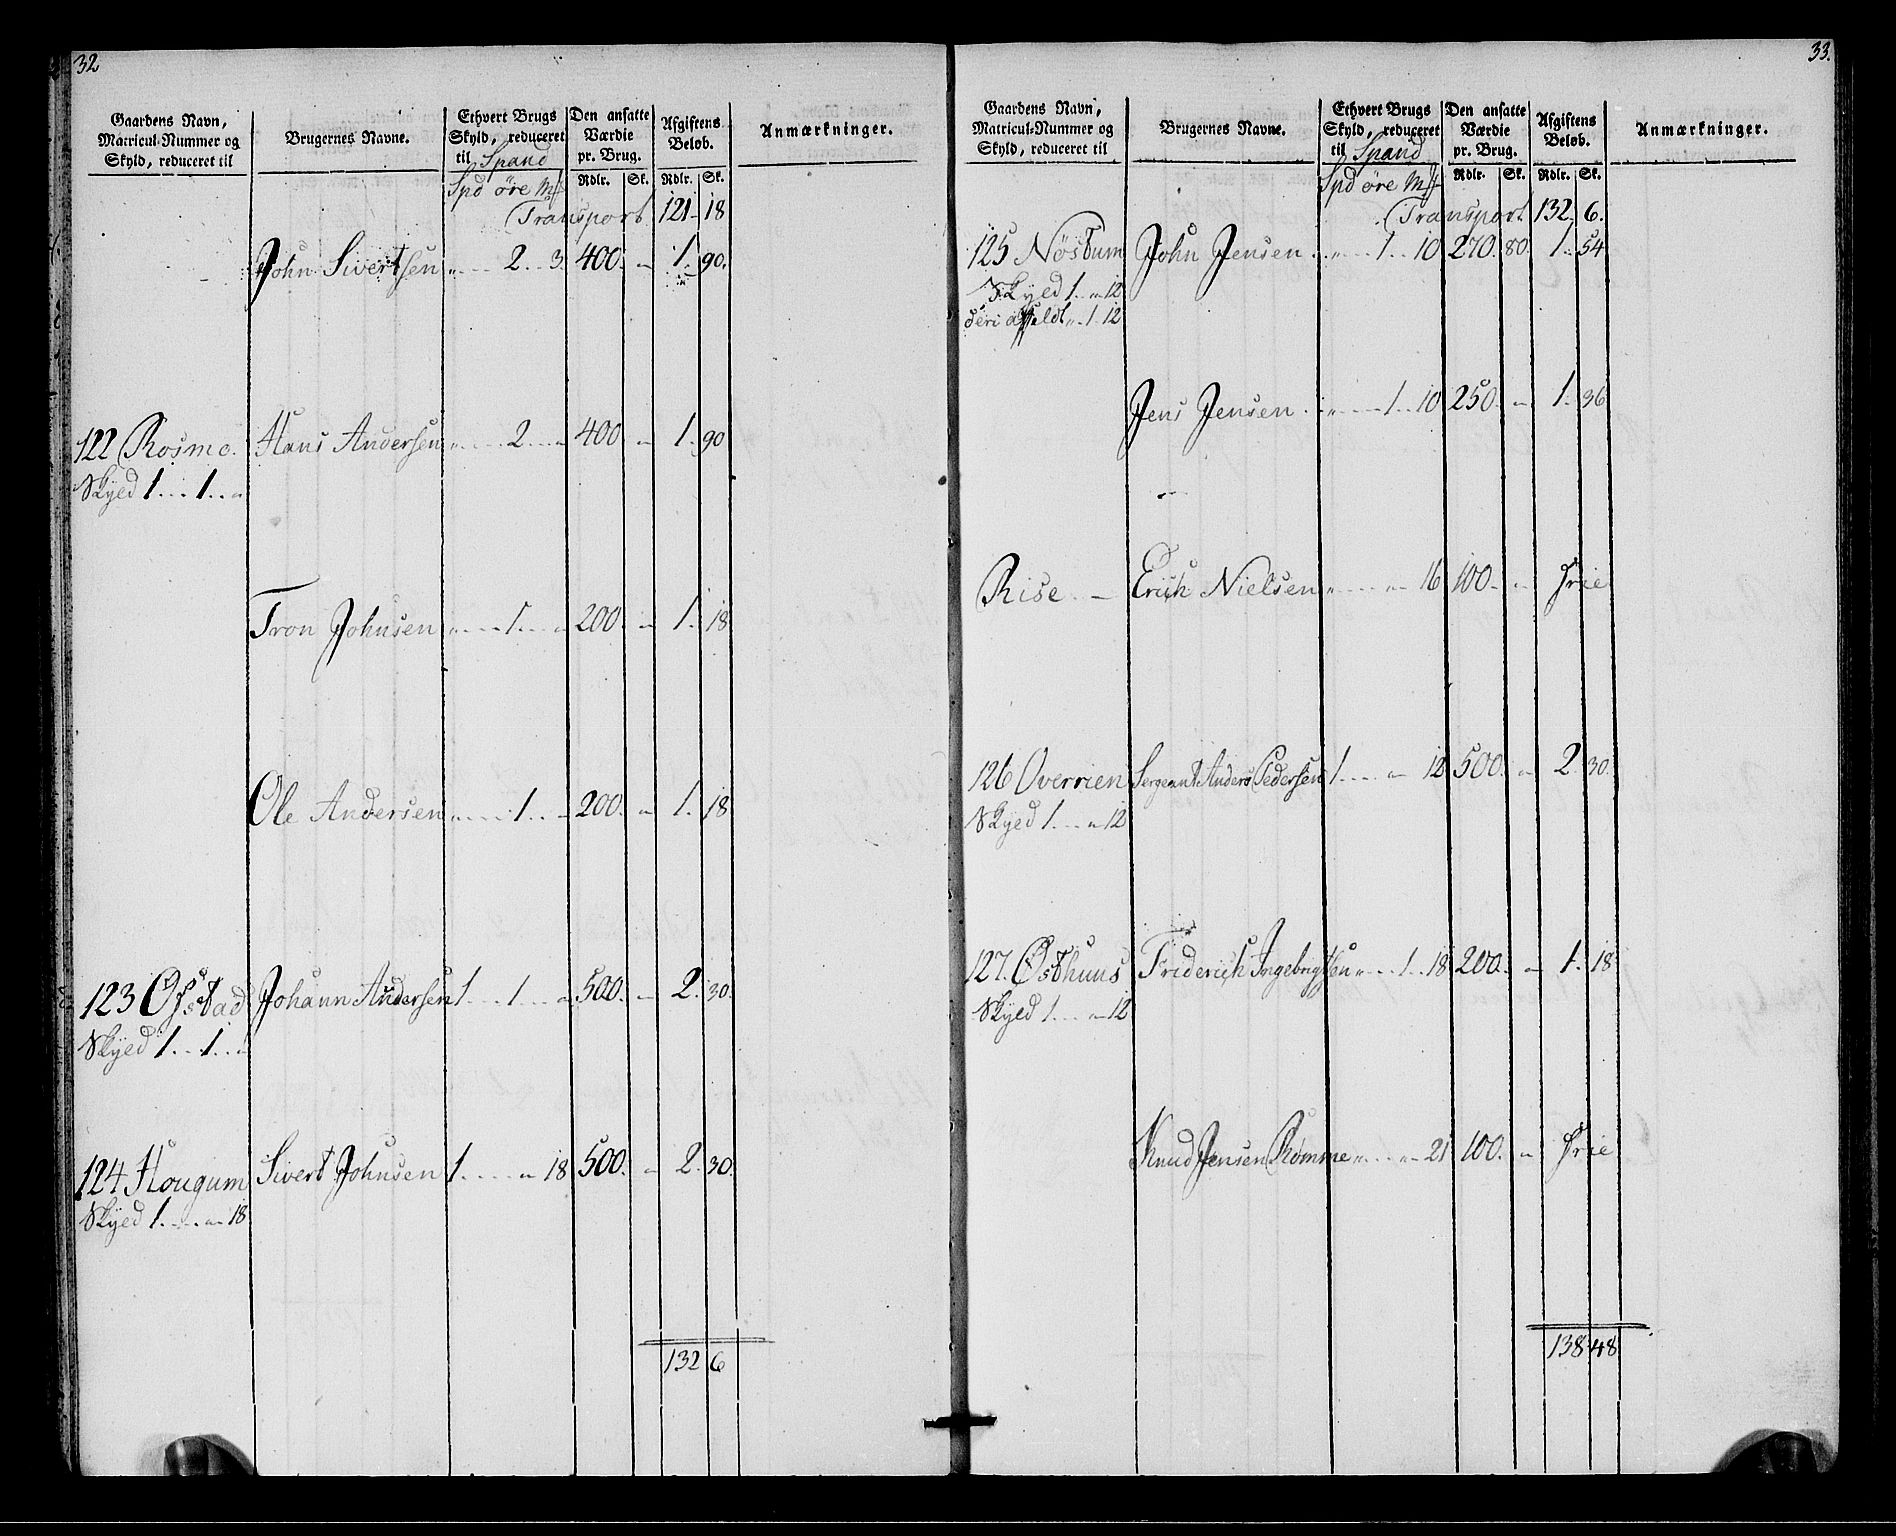 32
Gaardens Navn,
Matricul-Nummer og
Skyld, reduceret til
Brugernes Navne.
Ethvert Brugs
Skyld, reduceret
til Spand
Den ansatte
Værdie
pr. Brug.
Afgiftens
Beløb.
Anmærkninger.
Spd øre Mk
Rdlr. Sk. Rdlr. Sk.
Transport 121 18
John Sivertsen " 2 3 400 " 1. 90.
122 Rosmo. Hans Andersen " 2 " 400 " 1. 90
Skyld 1 1 "
Tron Johnsen " 1 " 200 " 1. 18
Ole Andersen " 1 " 200 " 1. 18
123 Ofstad Johann Andersen 1 1 " 500. " 2. 30.
Skyld 1 1 "
124 Hougum Sivert Johnsen 1 " 18 500. " 2. 30.
Skyld 1 " 18
132 6
33.
Gaardens Navn,
Matricul-Nummer og
Skyld, reduceret til
Brugernes Navne.
Ethvert Brugs
Skyld, reduceret
til Spand
Den ansatte
Værdie
pr. Brug.
Afgiftens
Beløb.
Anmærkninger.
Spd øre Mk
Rdlr. Sk. Rdlr. Sk.
Transport 132 6.
125 Nøstum John Jensen " 1 10 270. 80. 1. 54
Skyld 1 " 12
deri affeldt " 1 12
Jens Jensen " 1 10 250. " 1. 36
Rise Erich Nielsen " " 16 100. " frie
126 Overrien Sergeant Anders Pedersen 1 " 12 500. " 2. 30.
Skyld 1 " 12
127. Østhuus Friderich Ingebrigtsen " 1 18 200. " 1. 18
Skyld 1 " 12
Knud Jensen Rømme " " 21 100. " frie
138 48